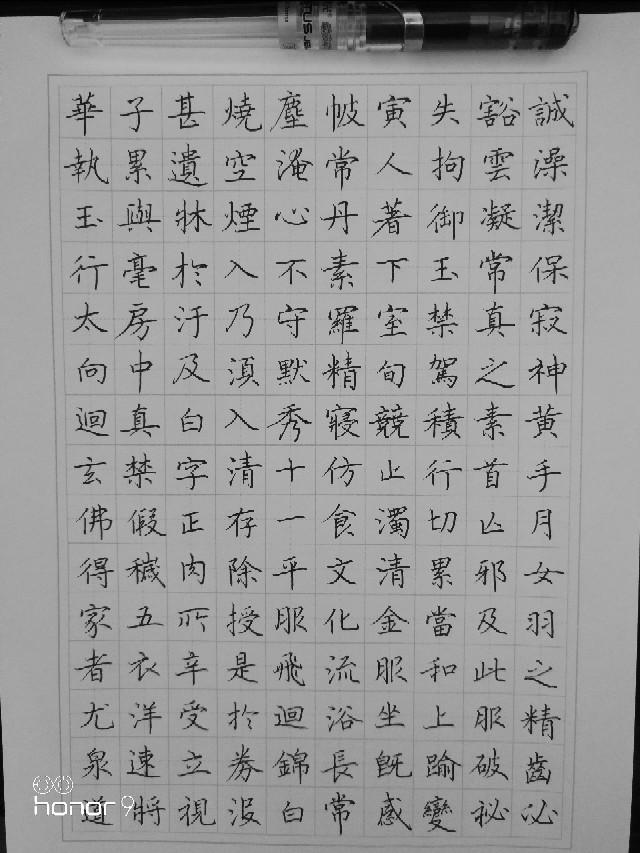 誠澡潔保寂神黄手月女羽之精齒必
豁雲凝常真之素首亾邪及此服破祕
失拘御玉禁駕積行切累當和上踰變
寅人著下室旬競止濁清金服坐既感
帔常丹素羅精寢仿食文化流浴長常
塵淹心不守默秀十一平服飛迴錦白
燒空煙入乃湏入清存除授是於券沒
甚遺牀於汙及白字正肉所辛受立視
子累與毫房中真禁假穢五衣洋速將
華執玉行太向迴玄佛得家者尤泉道
honor 9